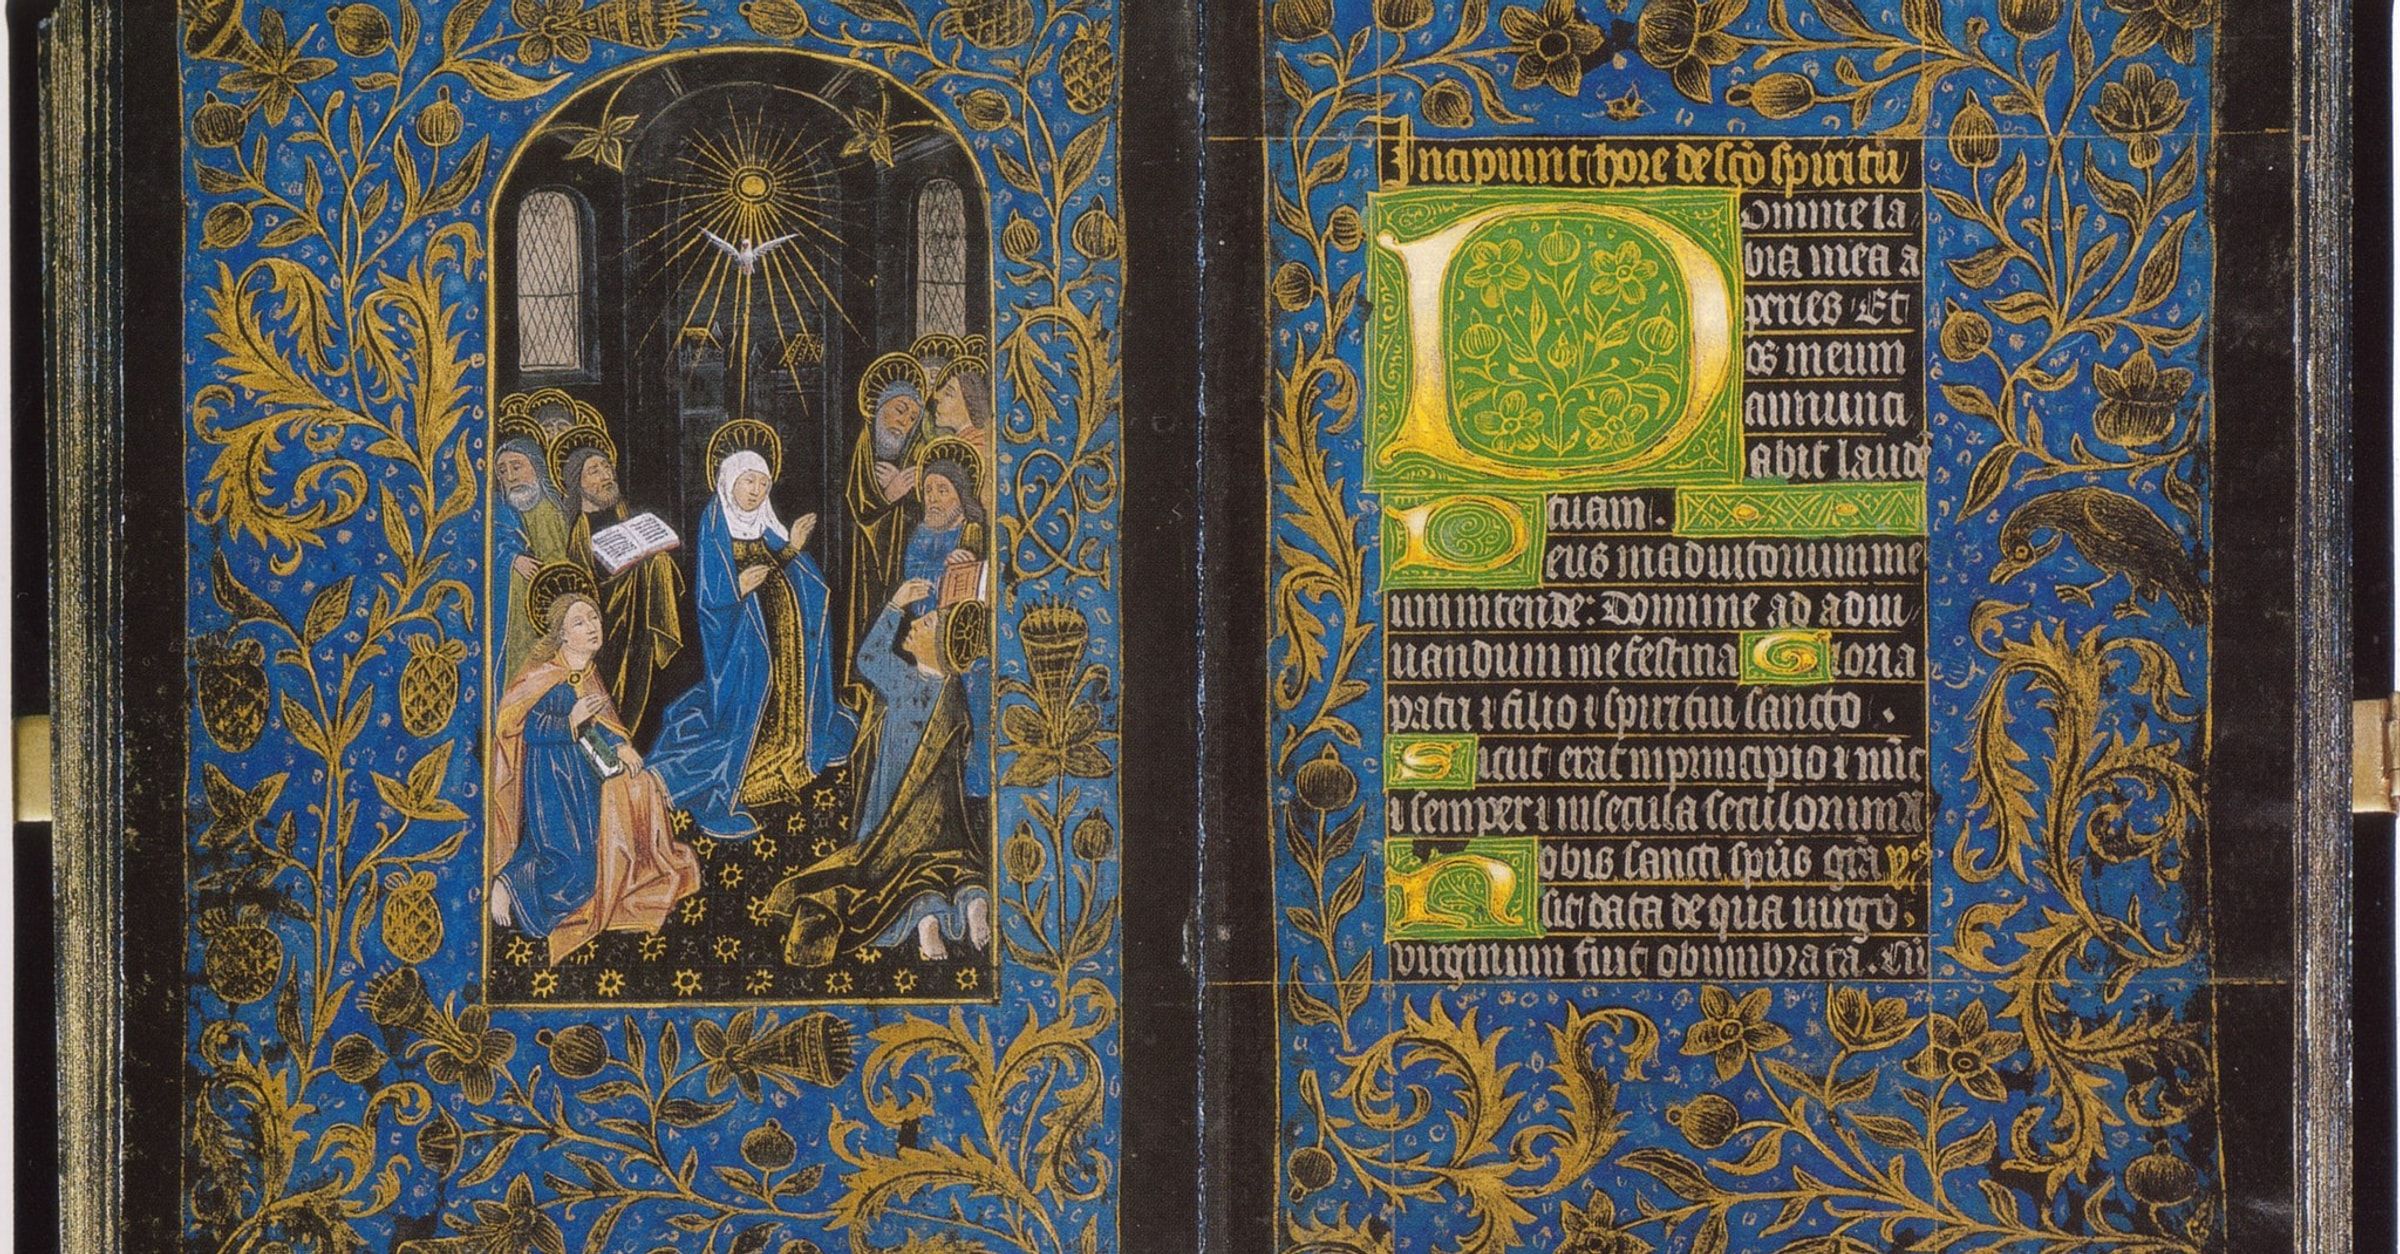 Incipiunt hore de sc̄o spiritu
Domine la
bia mea a
peries Et
os meum
annunti
abit laudē
tuam.
Deus in adiutorium me
um intende: Domine ad adiu
uandum me festina Gloria
patri ⁊ filio ⁊ spiritui sancto.
Sicut erat in principio ⁊ nūc
⁊ semper ⁊ in secula seculorum A
Nobis sancti sp̄us gr̄a
sit data de qua uirgo
virginum fuit obumbrata. Cū